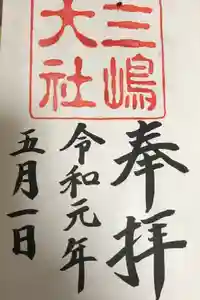 三嶋
大社
奉拝
令和元年
五月一日